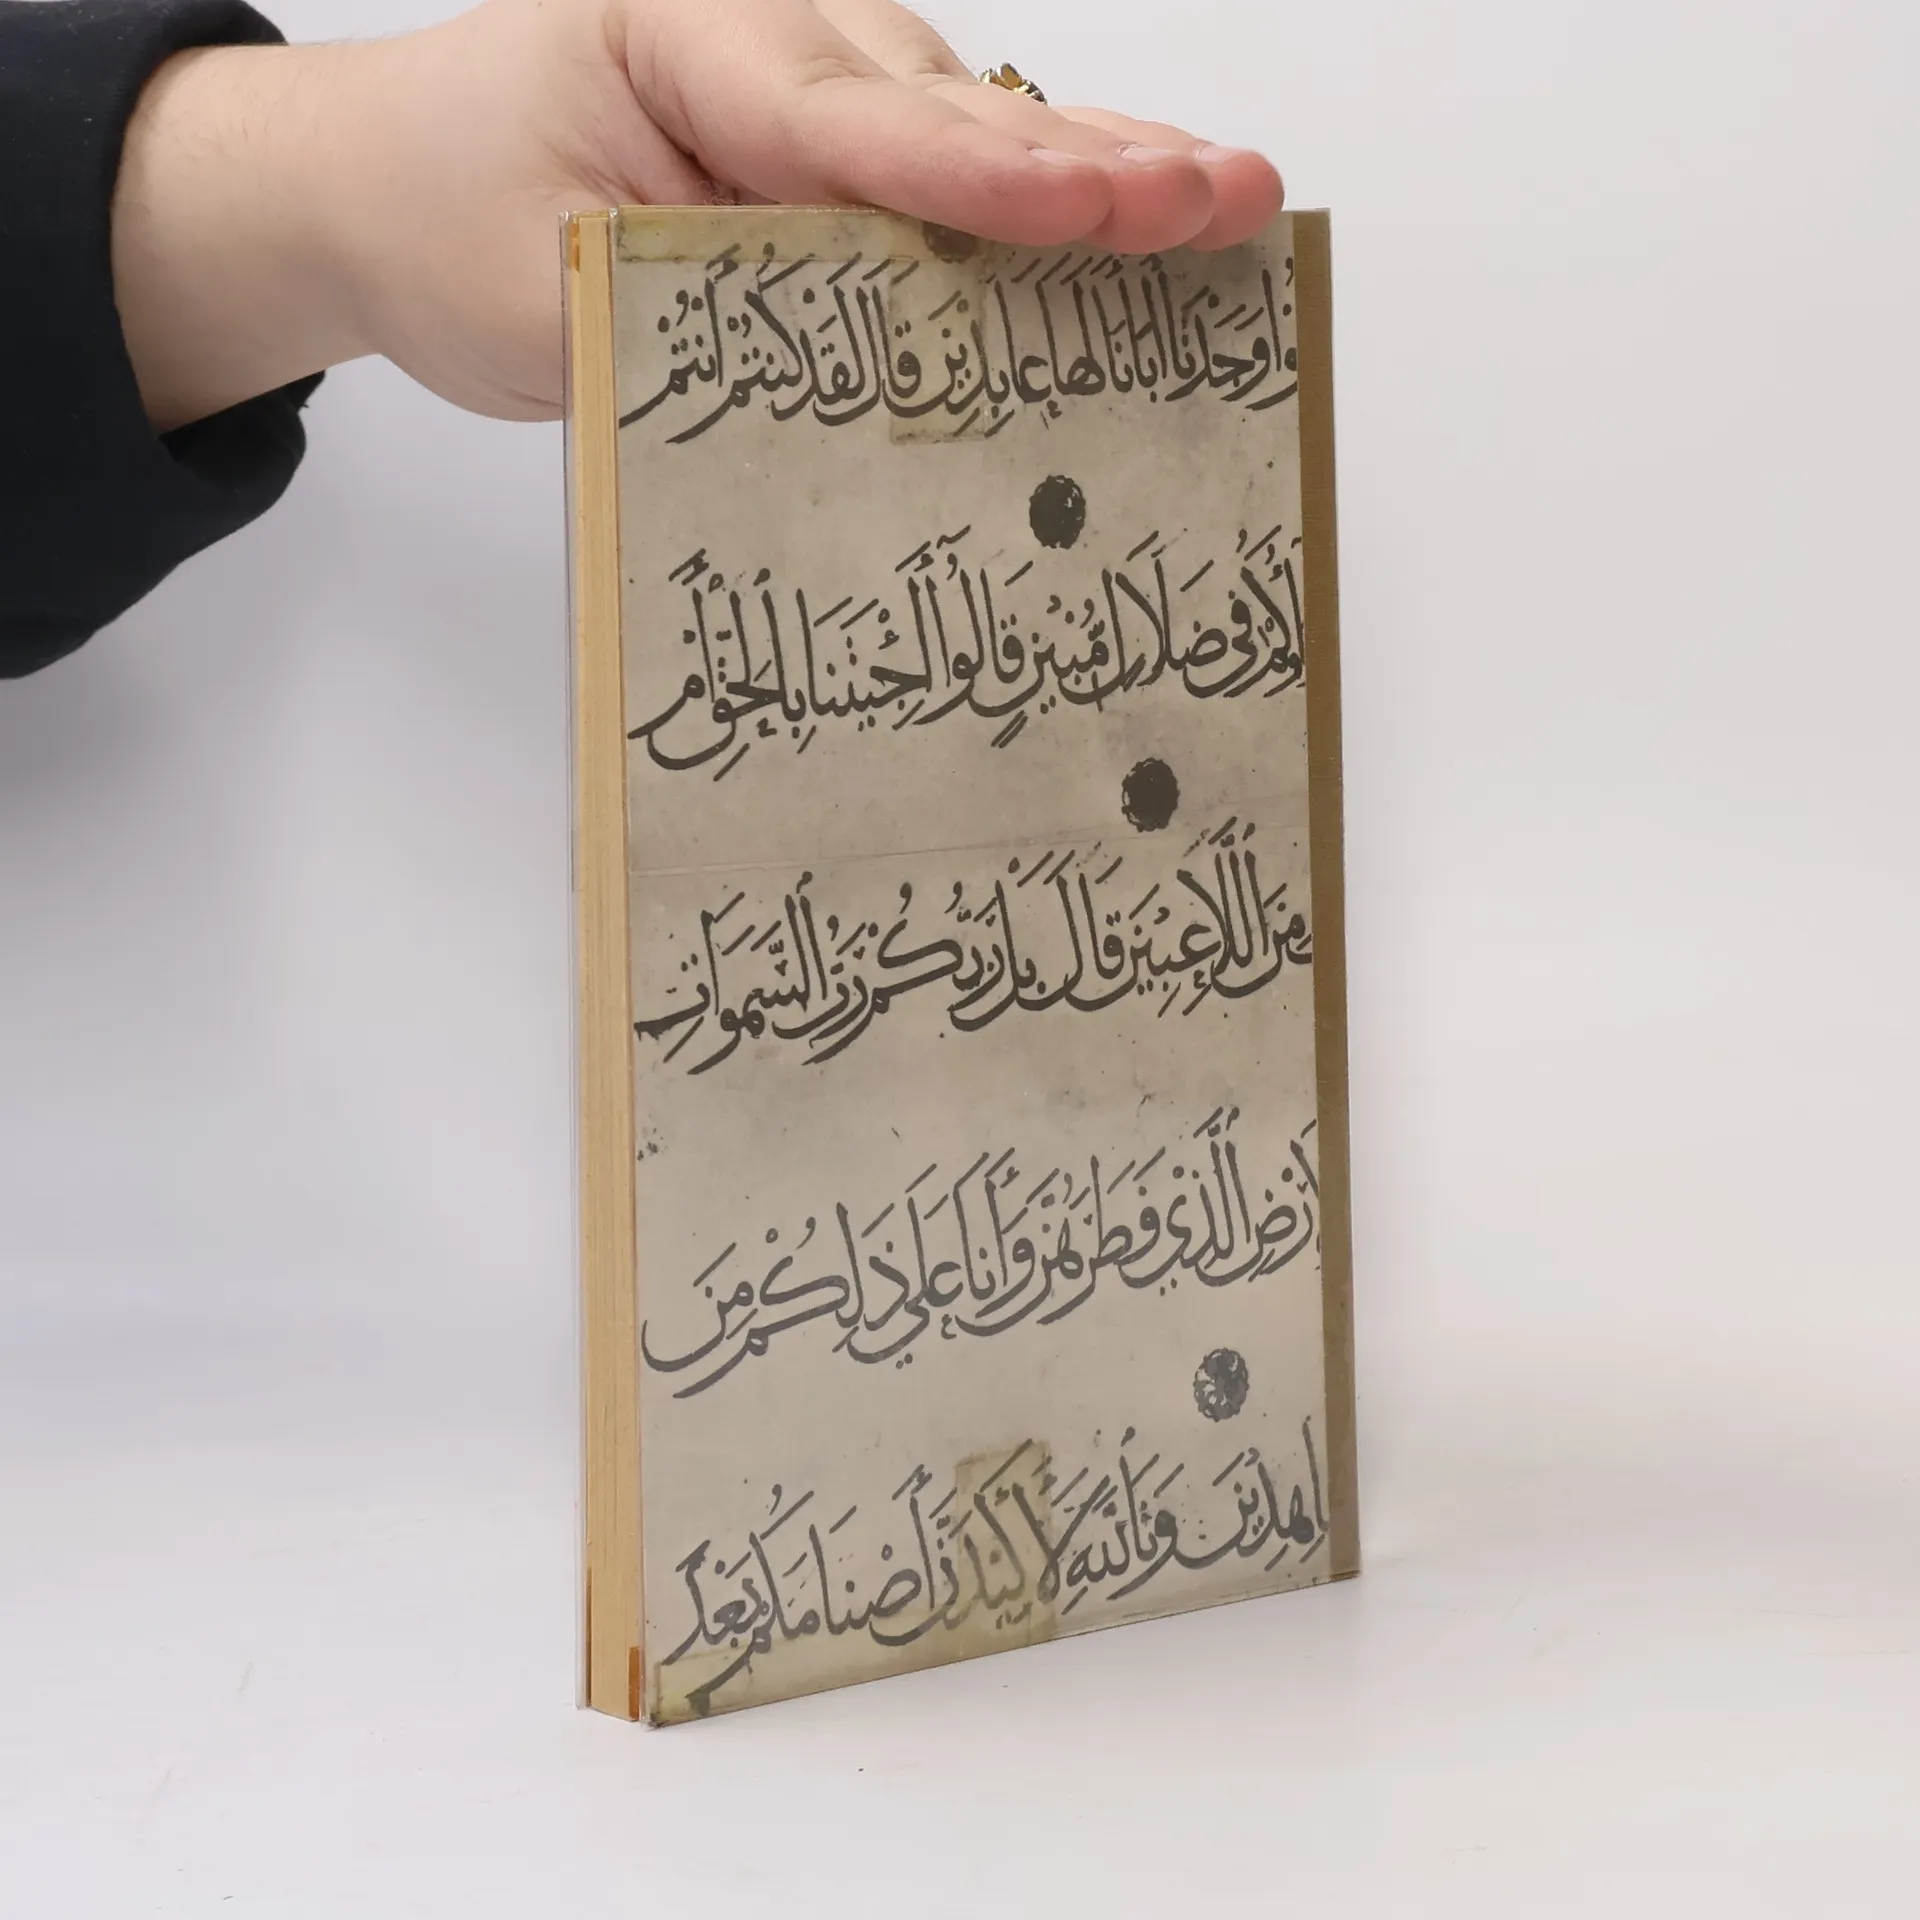 وُا وَجَدْنَا أَبَانَا لَهَا عَابِدِيْنَ قَالَ لَقَدْ كُنْتُمْ أَنْتُمْ
اؤُكُمْ فِي ضَلَالٍ مُّبِيْنٍ قَالُوا أَجِئْتَنَا بِالْحَقِّ أَمْ
مِنَ اللَّاعِبِيْنَ قَالَ بَل رَّبُّكُمْ رَبُّ السَّمَوَاتِ
أَرْضِ الَّذِيْ فَطَرَهُنَّ وَأَنَا عَلَى ذَلِكُمْ مِنَ
اهِدِيْنَ وَتَاللَّهِ لَأَكِيْدَنَّ أَصْنَامَكُمْ بَعْدَ